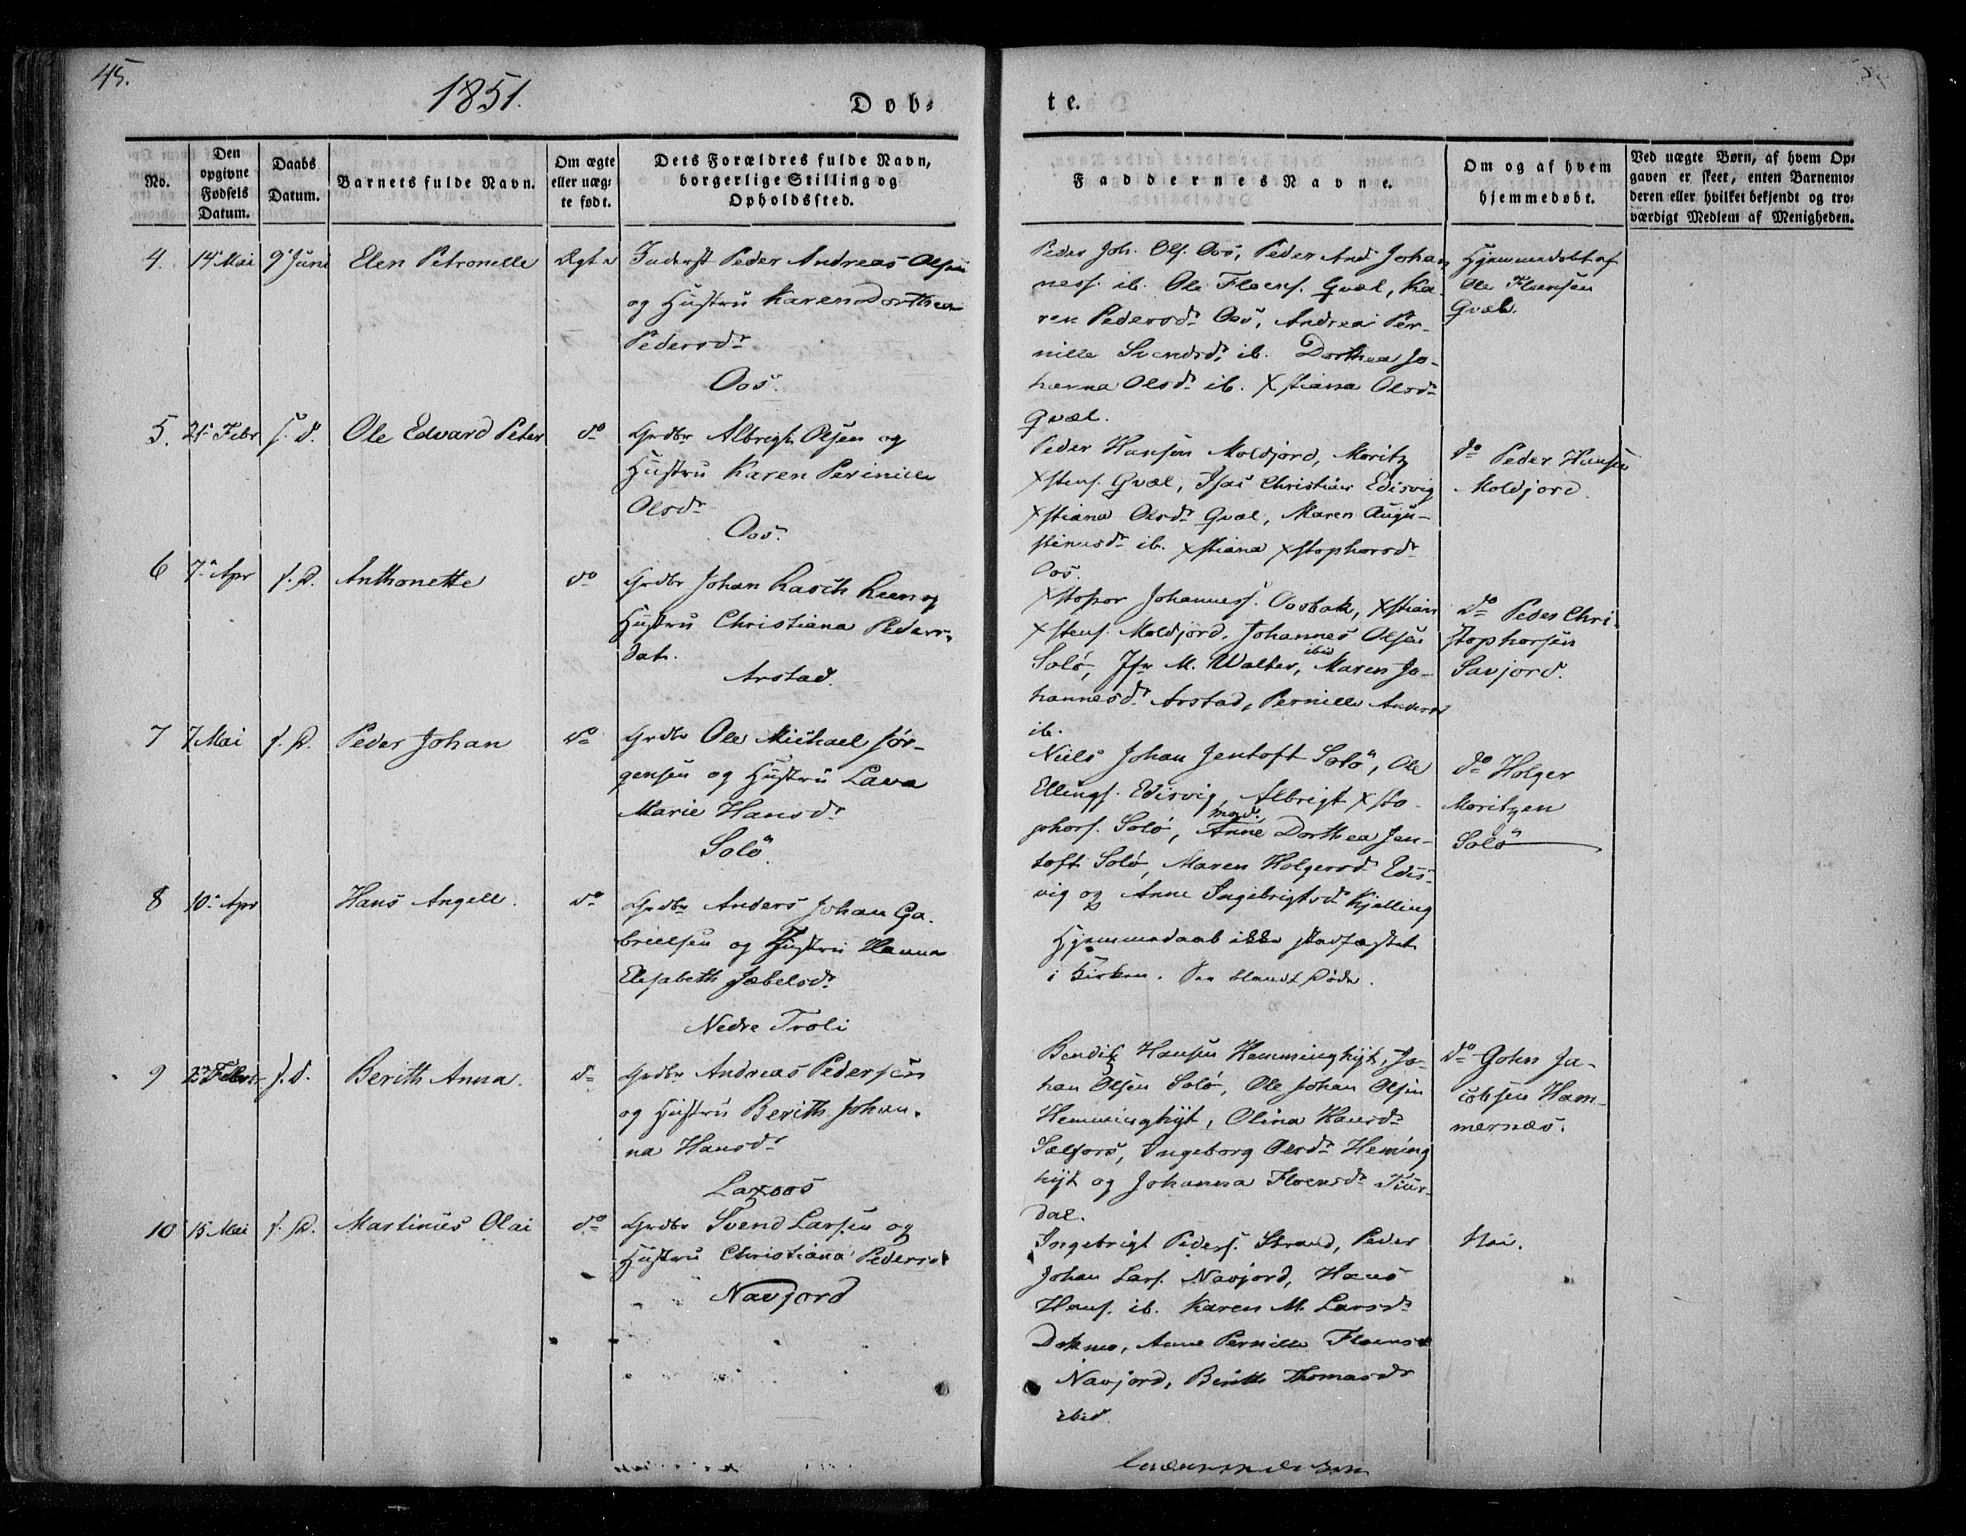 45.
1851.
Døb-
te.
No.
Den opgivne Fødsels Datum.
Daabs Datum.
Barnets fulde Navn.
Om ægte eller uæg- te født.
Dets Forældres fulde Navn, borgerlige Stilling og Opholdssted.
Faddernes Navne.
Om og af hvem hjemmedøbt.
Ved uægte Børn, af hvem Op- gaven er skeet, enten Barnemo- deren eller hvilket bekjendt og tro- værdigt Medlem af Menigheden.
4. 14 Mai 9 Juni Elen Petronelle Ægte
Inderst Peder Andreas Olsen
og Hustru Karen Dorthea
Pedersdr
Oos.
Peder Joh. Ols. Oos, Peder And Johan
ness. ib. Ole Floens. Gvæl, Ka-
ren Pedersdr Oos, Andrea Per-
nille Svendsdr ib. Dorthea Jo-
hanna Olsdr ib. Xstiana Olsdr
Gvæl.
Hjemmedøbt af
Ole Floensen
Gvæl.
5. 21 Febr s. D. Ole Edvard Peter do
Grdbr Albrigt Olsen og
Hustru Karen Pernille
Olsdr
Oos.
Peder Hansen Moldjord, Moritz
Xstens. Gvæl, Isac Christian Edisvig
Xstiana Olsdr Gvæl, Maren Augu-
stinusdr ib. Xstiana Xstophersdr
Oos.
do Peder Hansen
Moldjord.
6 7 Apr s. D. Anthonette do
Grdbr Johan Rasch Reen og
Hustru Christiana Peders-
dat.
Arstad.
Xstopor Johanness. Oosbak, Xstian
Xstens. Moldjord, Johannes Olsen
Solö, Jfr M. Walter, ibid Maren Jo-
hannesdr Arstad, Pernille Andersd
ib.
do Peder Chri-
stophersen
Savjord.
7 7 Mai s. D. Peder Johan do
Grdbr Ole Michael Jør-
gensen og Hustru Lava
Marie Hansdr
Solö.
Niels Johan Jentoft Solö, Ole
Ellings. Edisvig, Albrigt Xsto-
phers. Solö, mad. Anne Dorthea Jen-
toft Solö, Maren Holgersdr Edis-
vig og Anne Ingebrigtsdr Kjelling
do Holger
Moritzen
Solö
8 10 Apr Hans Angell. do
Grdbr Anders Johan Ga-
brielsen og Hustru Hanna
Elisabeth Jæbelsdr
Nedre Troli
Hjemmedaab ikke stadfæstet
i Kirken. See blandt Døde.
9 23 Febr s. D. Berith Anna. do
Grdbr Andreas Pedersen
og Hustru Berith Johan-
na Hansdr
Laxoos
Bendik Hansen Hemminghyt, Jo-
han Olsen Solö, Ole Johan Olsen
Hemminghyt, Olina Hansdr
Sælfors, Ingeborg Olsdr Heming
hyt og Johanna Floensdr Tuur-
dal.
do John Ja-
cobsen Ham-
mernæs.
10 15 Mai s. D. Martinus Olai do
Grdbr Svend Larsen og
Hustru Christiana Pedersd
Navjord
Ingebrigt Peders. Strand, Peder
Johan Lars. Navjord, Hans
Hans. ib. Karen M. Larsdr
Dokmo, Anne Pernille Floensd
Navjord, Berith Thomasdr
ibid.
Nei.